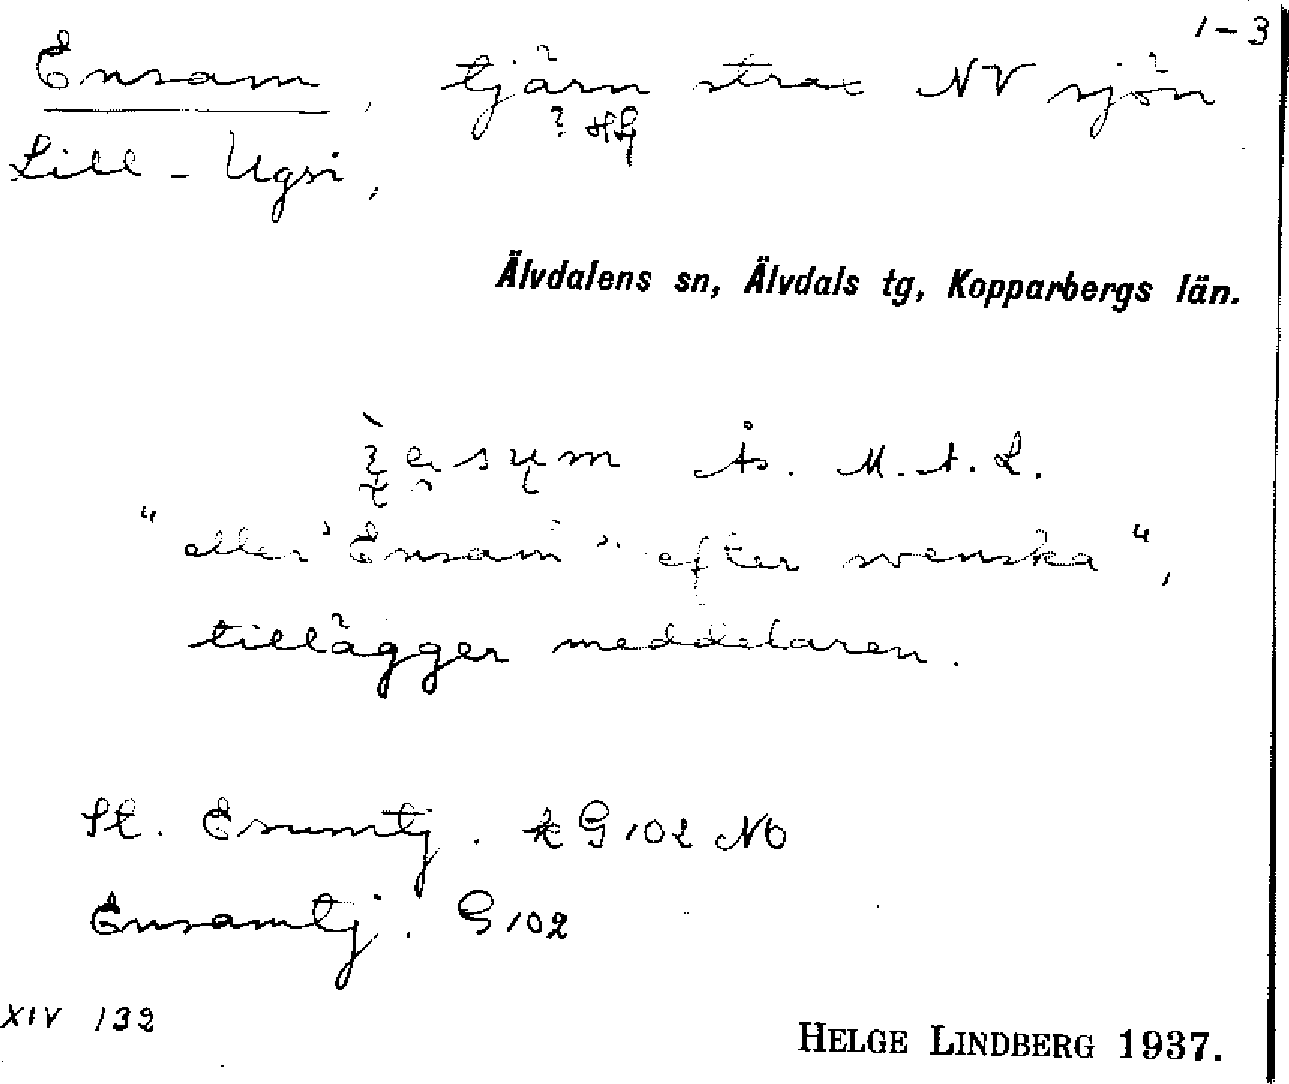 1-3
Ensam, tjärn strax NV sjön
? HLg
Lill-Ugsi,
Älvdalens sn, Älvdals tg, Kopparbergs län.
Ås. M.A.L.
"eller 'Ensam' efter svenska",
tillägger meddelaren.
St. Esumtj. k G 102 NO
Ensamtj. G 102
XIV 132
HELGE LINDBERG 1937.